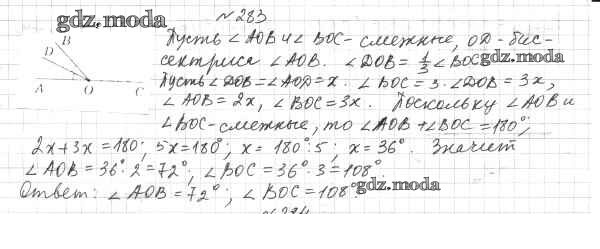 gdz.moda
№ 283
B
D
A
O
C
Пусть ∠AOB и ∠BOC - смежные, ОД - бис-
сектриса ∠AOB. ∠DOB = 1/3 ∠BOC
gdz.moda
Пусть ∠DOB = ∠AOD = x. ∠BOC = 3·∠DOB = 3x,
∠AOB = 2x, ∠BOC = 3x. Поскольку ∠AOB и
∠BOC - смежные, то ∠AOB + ∠BOC = 180°;
2x + 3x = 180°; 5x = 180°; x = 180°:5; x = 36°. Значит
∠AOB = 36°·2 = 72°; ∠BOC = 36°·3 = 108°.
Ответ: ∠AOB = 72°; ∠BOC = 108°
gdz.moda